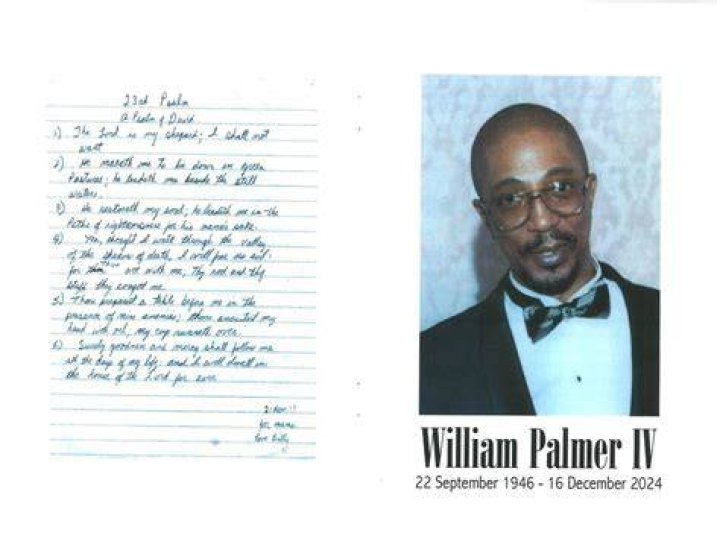 23rd Psalm
A Psalm of David
1) The Lord is my shepard; I shall not
want
2) He maketh me to lie down in green
Pastures; he leadeth me beside the still
waters.
3) He restoreth my soul; he leadeth me in the
Paths of righteousness for his name's sake.
4) Yea, thought I walk through the valley
of the shadow of death, I will fear no evil:
for thou art with me, thy rod and thy
staff they comfort me.
5) Thou preparest a table before me in the
presence of mine enemies; thou anointed my
head with oil, my cup runneth over.
6) Surely goodness and mercy shall follow me
all the days of my life, and I will dwell in
the house of the Lord for ever
for mama
love Billy
William Palmer IV
22 September 1946 - 16 December 2024